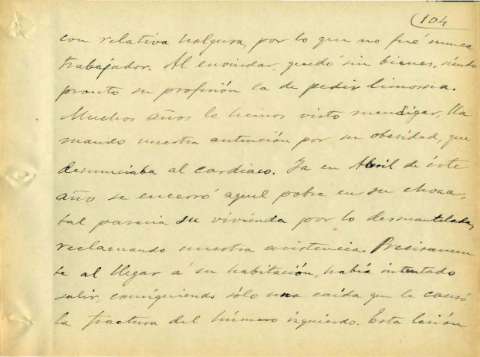 104
con relativa holgura, por lo que no fué nunca
trabajador. Al enviudar, quedó sin bienes, siendo
pronto su profesión la de pedir limosna.
Muchos años lo hemos visto mendigar, lla
mando nuestra atención por su obesidad, que
denunciaba al cardiaco. Ya en Abril de éste
año se encerró aquel pobre en su choza,
tal parecia su vivienda por lo desmantelada,
reclamando nuestra asistencia. Precisamen
te al llegar á su habitación, habia intentado
salir, consiguiendo sólo una caida que le causó
la fractura del húmero izquierdo. Esta lesión